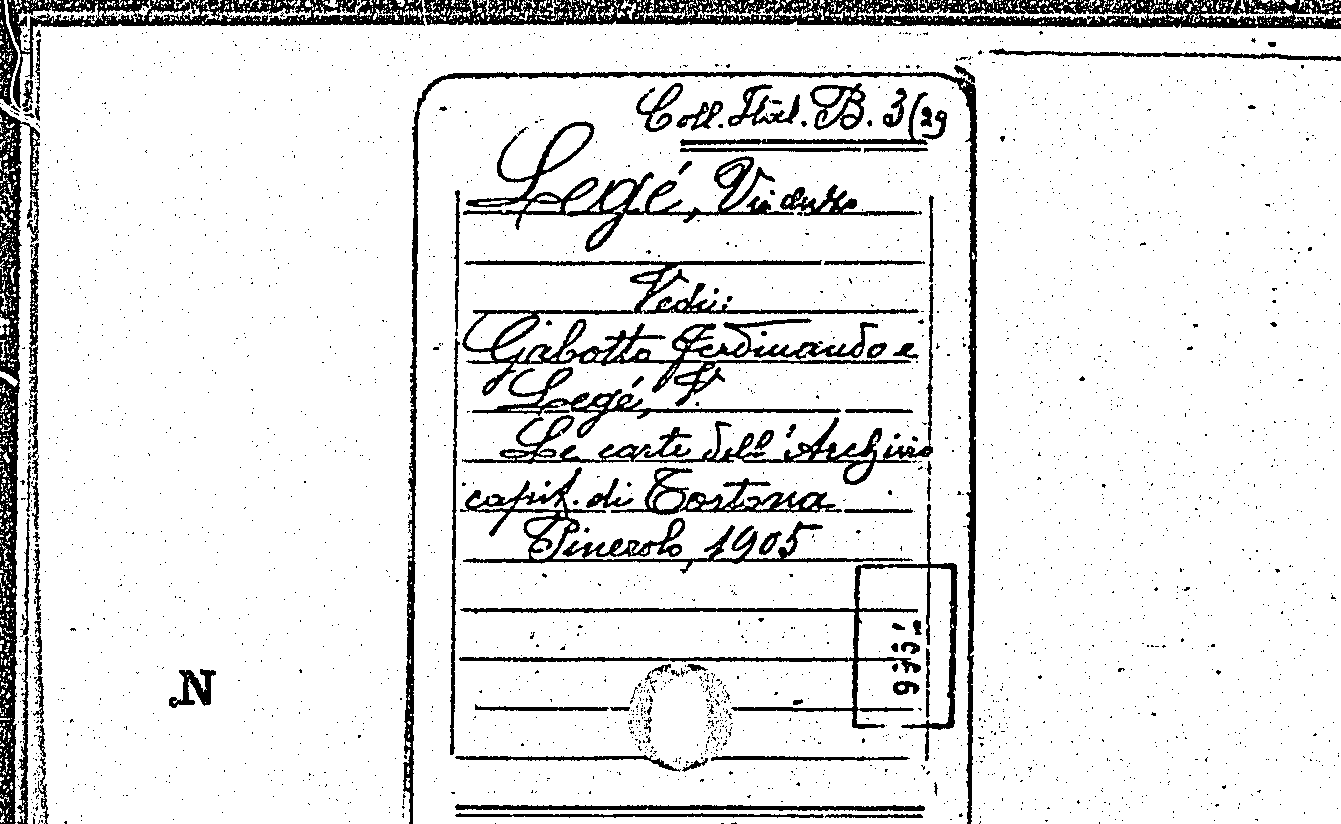 Coll. Ital. B. 3(29
Legé, Vincenzo
Vedi:
Gabotto Ferdinando e
Legé, V.
Le carte dell'Archivio
capit. di Tortona
Pinerolo, 1905
N